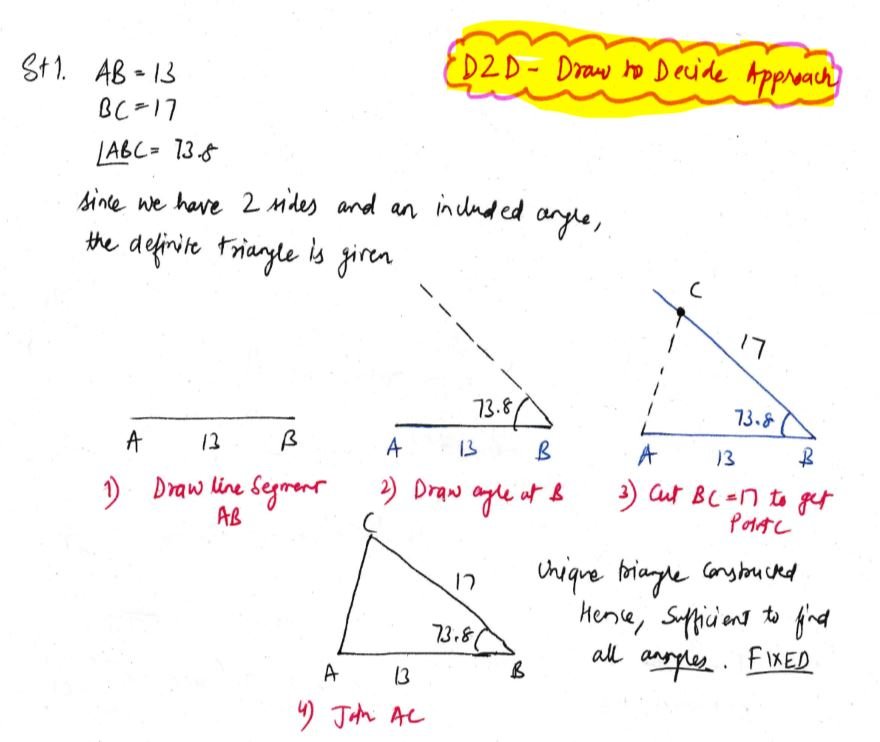 St1. AB = 13
BC = 17
∠ABC = 73.8
D2D - Draw to Decide Approach
since we have 2 sides and an included angle,
the definite triangle is given
A 13 B
1) Draw line Segment
AB
73.8
A 13 B
2) Draw agle at B
C
17
73.8
A 13 B
3) Cut BC = 17 to get
Point C
C
17
73.8
A 13 B
4) Join AC
Unique triangle constructed
Hence, Sufficient to find
all angles. FIXED